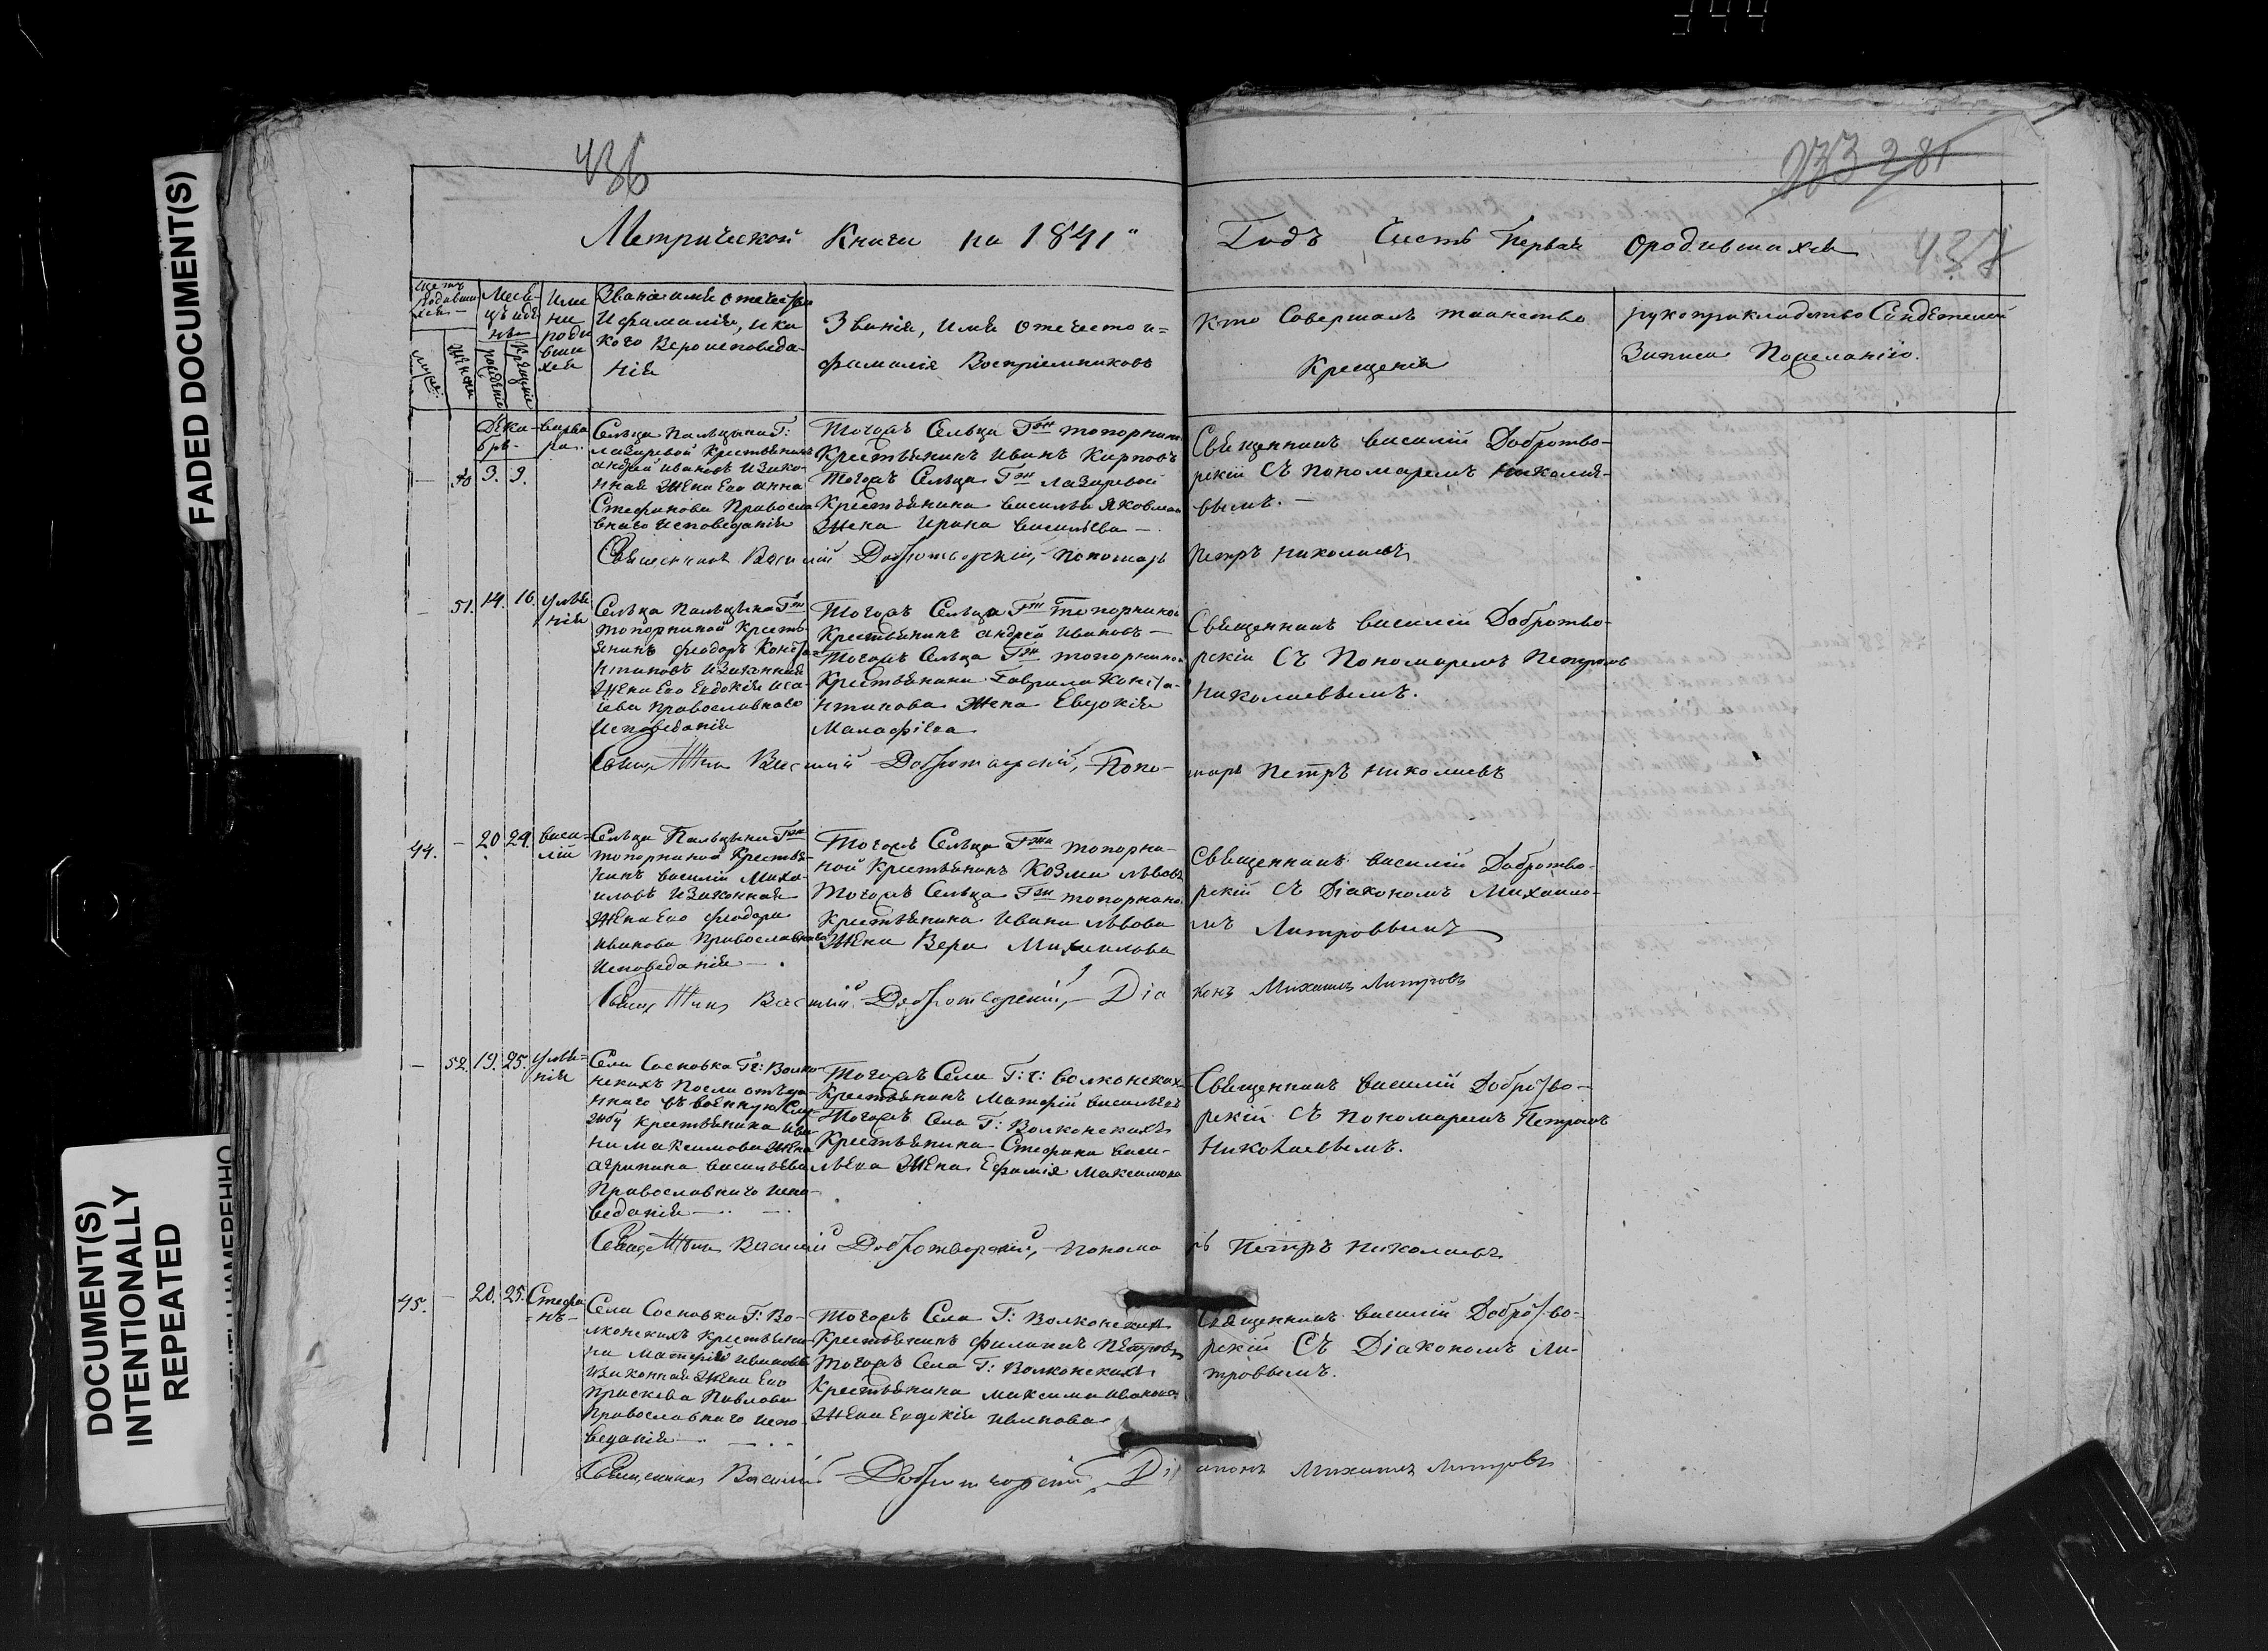 436
233 281
437
Метрической Книги на 1841"
Годъ Часть Первая о родившихся
Щетъ родившихся
Муж:
Женск:
Месяцъ и день
рождение
Крещение
Имена родившихся
Звание имя отечество
и фамилия, и ка
кого Вероисповеда-
ния
Звание, имя отечество и=
фамилия Восприемниковъ
Кто Совершалъ таинство
Крещения
рукоприкладство Свидетелей
Записи По желанию.
Дека-
брь
Варва
ра.
— 50 3. 9.
Сельца Пальцына Г:
Лазаревой Крестьянинъ
Андрей Ивановъ И зако-
нная Жена Его Анна
Стефанова Правосла
внаго исповедания
Тогожъ Сельца Гжи Топорнин.
Крестьянинъ Иванъ Карповъ
Тогожъ Сельца Гжи Лазаревой
Крестьянина Василья Яковлева
Жена Ирина Васильева —
Священникъ Василий Добротво-
рский Съ Пономаремъ Николае-
вымъ. —
Священникъ Василий Добротворский, Пономарь Петръ Николаевъ
— 51. 14. 16. Улья
ния
Сельца Пальцына Гжи
Топорниной Кресть-
янинъ Феодоръ Конста-
нтиновъ И законная
Жена Его Евдокия Иса-
иева Православнаго
Исповедания
Тогожъ Сельца Гжи Топорниной
Крестьянинъ Андрей Ивановъ —
Тогожъ Сельца Гжи Топорниной
Крестьянина Гаврила Конста-
нтинова Жена Евдокия
Малафиева
Священникъ Василий Добротво-
рский Съ Пономаремъ Петромъ
Николаевымъ.
Священникъ Василий Добротворский, Поно- марь Петръ Николаевъ
44. — 20 24. Васи-
лий
Сельца Пальцына Гжи
Топорниной Крестья-
нинъ Василий Миха-
иловъ И законная
Жена Его Феодора
Иванова Православнаго
Исповедания — .
Тогожъ Сельца Гжи Топорни-
ной Крестьянинъ Козма Львовъ
Тогожъ Сельца Гжи Топорниной
Крестьянина Ивана Львова
Жена Вера Михаилова
Священникъ Василий Добротво-
рский Съ Диакономъ Михаило-
мъ Литровымъ
Священникъ Василий Добротворский, — Диа конъ Михаилъ Литровъ
— 52. 19. 25. Улья=
ния
Села Сосновка Г:г: Волко
нскихъ После отъда
ннаго въ военную Слу-
жбу Крестьянина Ива-
на Максимова Жена
Агрипина Васильева
Православнаго испо-
ведания — .. —
Тогожъ Села Г:г: Волконских
Крестьянинъ Матфий Васильевъ
Тогожъ Села Г: Волконскихъ
Крестьянина Стефана Васи-
льева Жена Ефимия Максимова
Священникъ Василий Добротво-
рский Съ Пономаремъ Петромъ
Николаевымъ.
Священникъ Василий Добротворский, — Понома рь Петръ Николаевъ
45. — 20. 25. Стефа
=нъ-
Села Сосновка Г: Во-
лконскихъ Крестьяни-
на Матфий Ивановъ
И законная Жена Его
Праскева Павлова
Православнаго испо-
ведания — . — ..
Тогожъ Села Г: Волконских
Крестьянинъ Филипъ Петровъ
Тогожъ Села Г: Волконскихъ
Крестьянина Максима Иванова
Жена Евдокия Иванова
Священникъ Василий Добротво-
рский Съ Диакономъ Ли-
тровымъ.
Священникъ Василий Добротворский, Ди аконъ Михаилъ Литровъ
FADED DOCUMENT(S)
DOCUMENT(S)
INTENTIONALLY
REPEATED